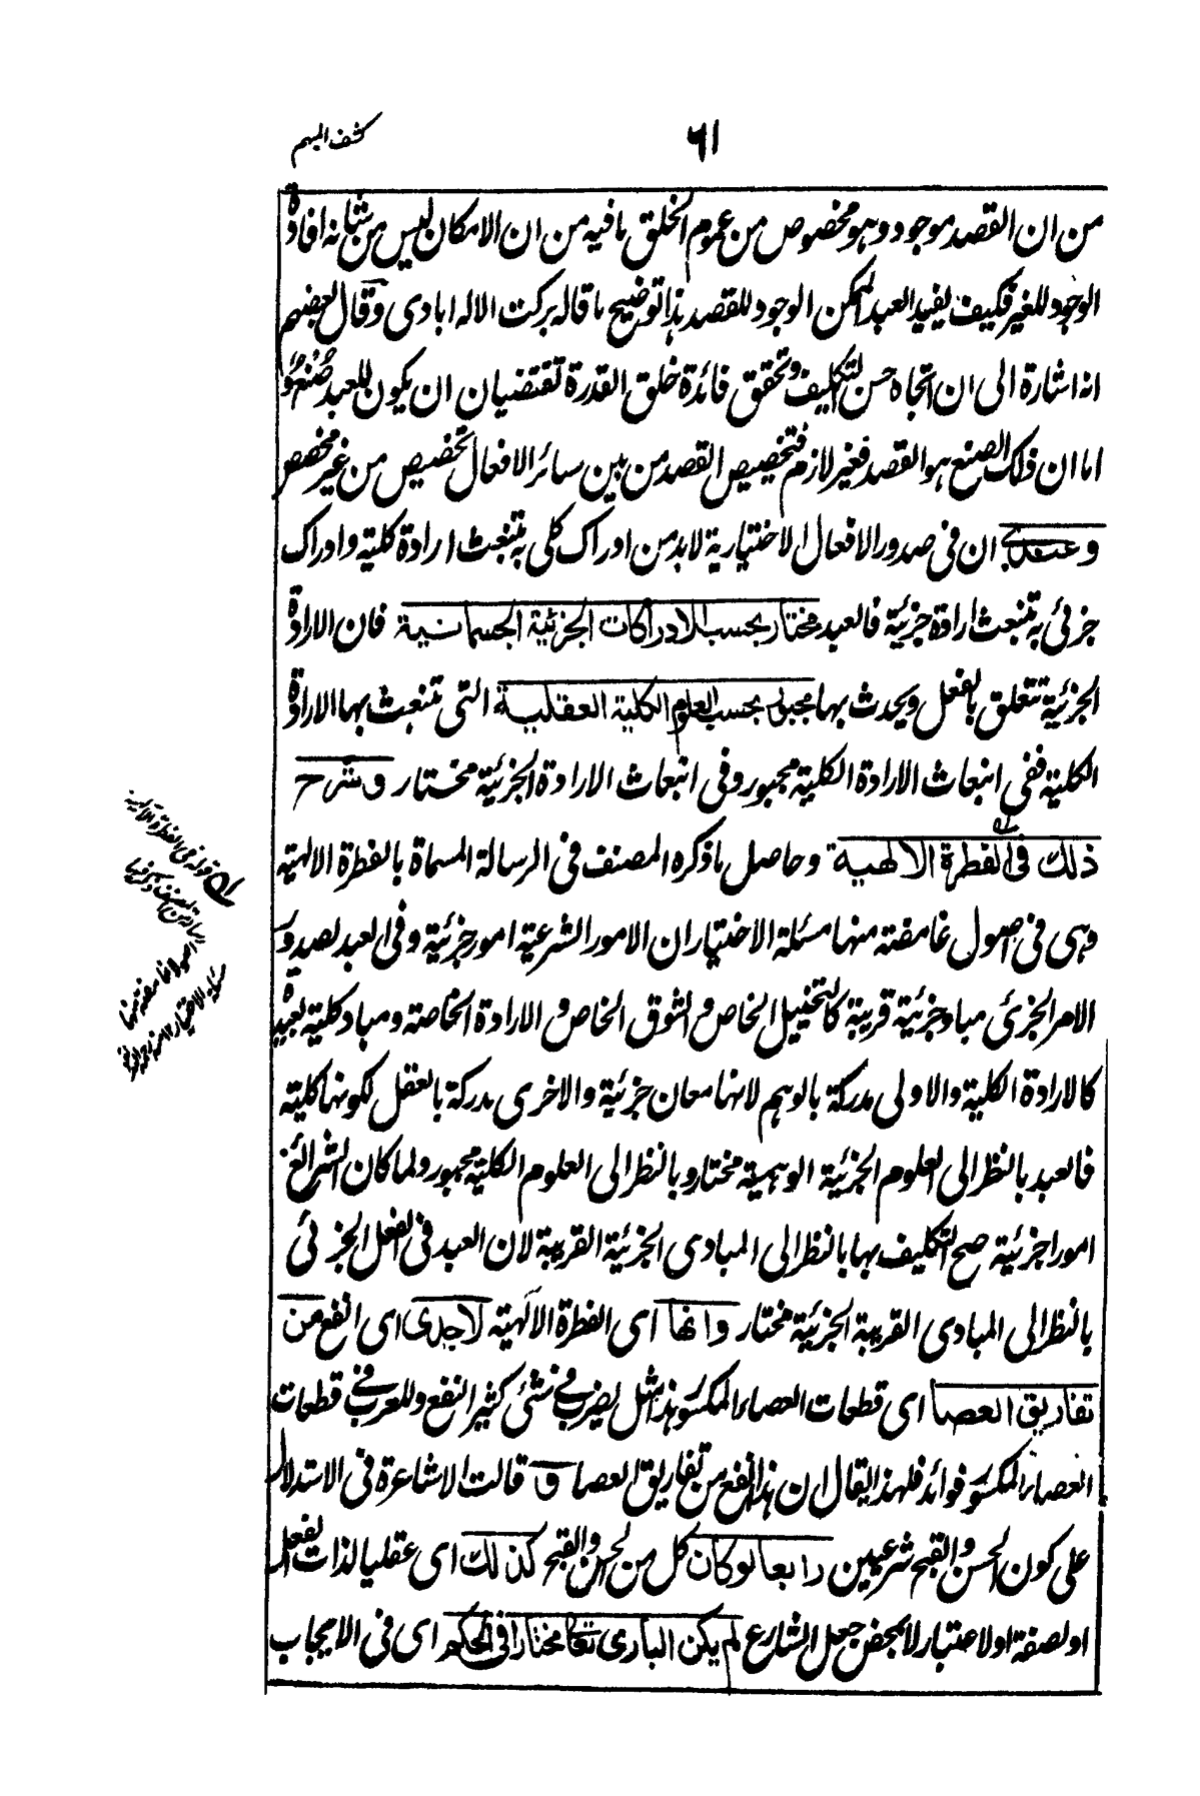 كشف المبهم
٦١
من ان القصد موجود وهو مخصوص من عموم الخلق ما فيه من ان الامكان ليس من شانه افادة
الوجود للغير فكيف يفيد العبد الممكن الوجود للقصد هذا توضيح ما قاله بركت الاله ابادى وقال بعضهم
انه اشارة الى ان اتجاه حسن التكليف وتحقق فائدة خلق القدرة تقتضيان ان يكون للعبد صُنع مّا
اما ان ذلك الصنع هو القصد فغير لازم فتخصيص القصد من بين سائر الافعال تخصيص من غير مخصص
وعندى ان فى صدور الافعال الاختيارية لابد من ادراك كلى به تنبعث ارادة كلية وادراك
جزئى به تنبعث ارادة جزئية فالعبد مختار بحسب الادراكات الجزئية الجسمانية فان الارادة
الجزئية تتعلق بالفعل ويحدث بها مجبور بحسب العلوم الكلية العقلية التى تنبعث بها الارادة
الكلية ففى انبعاث الارادة الكلية مجبور وفى انبعاث الارادة الجزئية مختار وشرح
ذلك فى الفطرة الالهية وحاصل ما ذكره المصنف فى الرسالة المسماة بالفطرة الالهية
وهى فى اصول غامضة منها مسئلة الاختيار ان الامور الشرعية امور جزئية وفى العبد لصدور
الامر الجزئى مباد جزئية قريبة كالتخييل الخاص والشوق الخاص والارادة الخاصة ومباد كلية بعيدة
كالارادة الكلية والاولى مدركة بالوهم لانها معان جزئية والاخرى مدركة بالعقل لكونها كلية
فالعبد بالنظر الى العلوم الجزئية الوهمية مختار وبالنظر الى العلوم الكلية مجبور ولما كان الشرائع
امورا جزئية صح التكليف بها بالنظر الى المبادى الجزئية القريبة لان العبد فى الفعل الجزئى
بالنظر الى المبادى القريبة الجزئية مختار وانها اى الفطرة الالهية لاجدى اى انفع من
تفاريق العصا اى قطعات العصاء المكسور هذا مثل يضرب فى شئ كثير النفع وللعرب فى قطعات
العصاء المكسور فوائد فلهذا يقال ان هذا انفع من تفاريق العصا ق قالت الاشاعرة فى الاستدلال
على كون الحسن والقبح شرعيين رابعا لو كان كل من الحسن والقبح كذلك اى عقليا لذات الفعل
او لصفة او لاعتبار لا بمحض جعل الشارع لم يكن البارى تعالى مختارا فى الحكم اى فى الايجاب
له قوله فى الفطرة الالهية